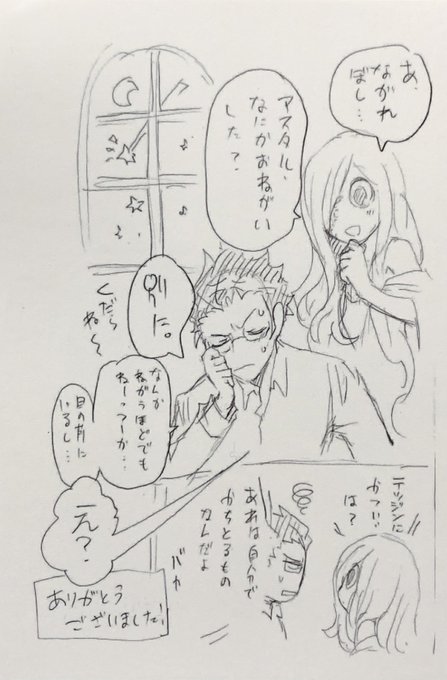 あ、
ながれ
ぼし…
アスタル、
なにかおねがい
した？
別に。
くだらね〜
なんか
ねがうほどでも
ねーっつーか…
目の前に
いるし…
え？
テツジンに
かつい
は？
あれは自分で
かちとるもの
なんだよ
バカ
ありがとう
ございました！